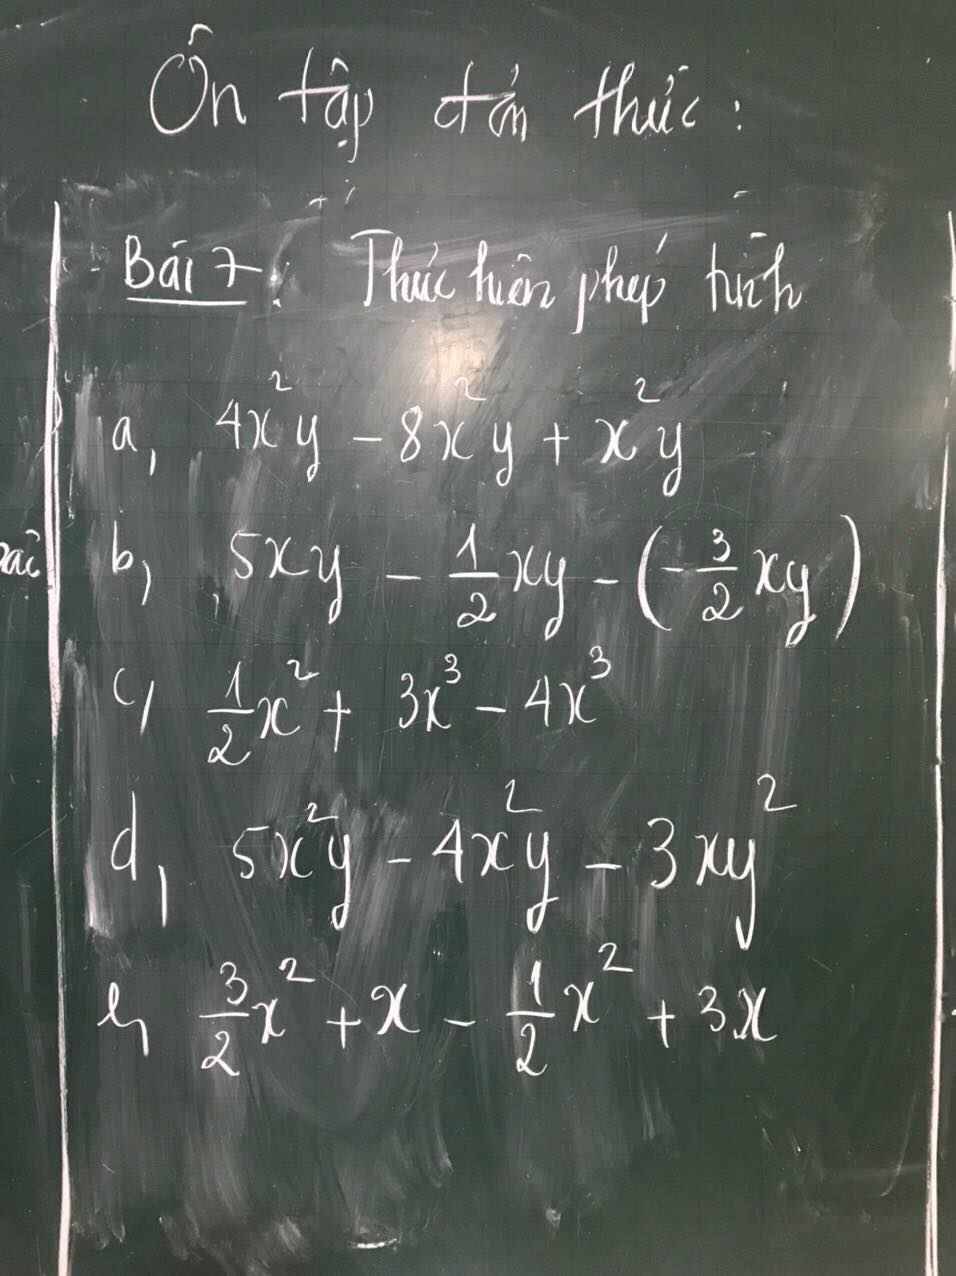 Ôn tập đơn thức:
Bài 7: Thực hiện phép tính
a, 4x²y - 8x²y + x²y
b, 5xy - 1/2 xy - (-3/2 xy)
c, 1/2 x² + 3x³ - 4x³
d, 5x²y - 4x²y - 3xy²
e, 3/2 x² + x - 1/2 x² + 3x